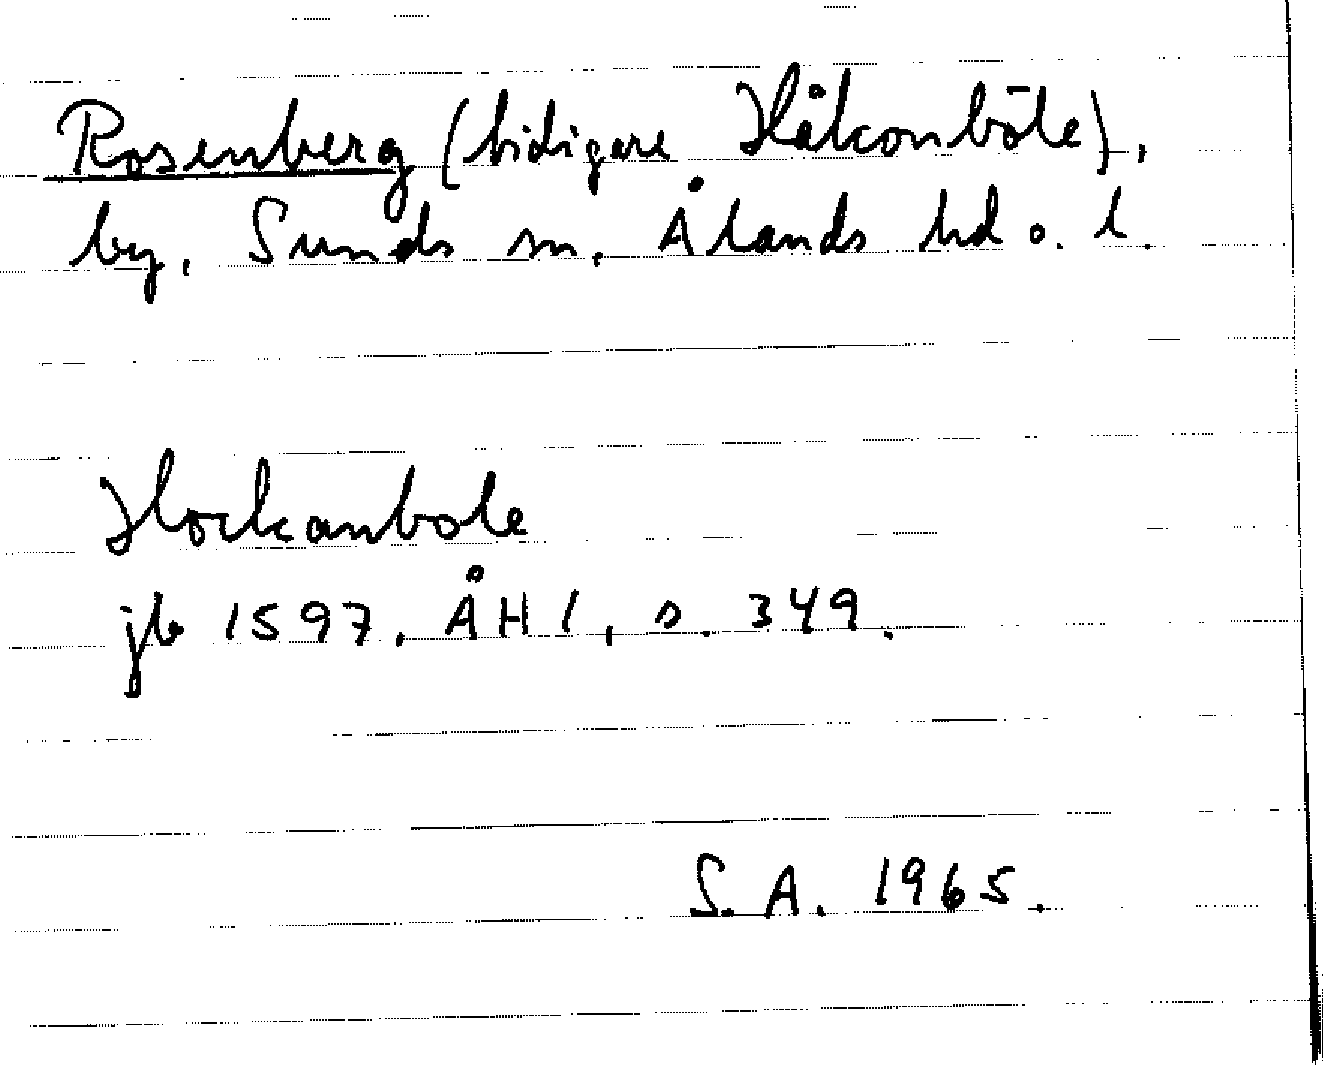 Rosenberg (tidigare Håkonböle),
by, Sunds sn, Ålands hd o. l.
Hockanbole
jb 1597. ÅH 1, s. 349.
S. A. 1965.